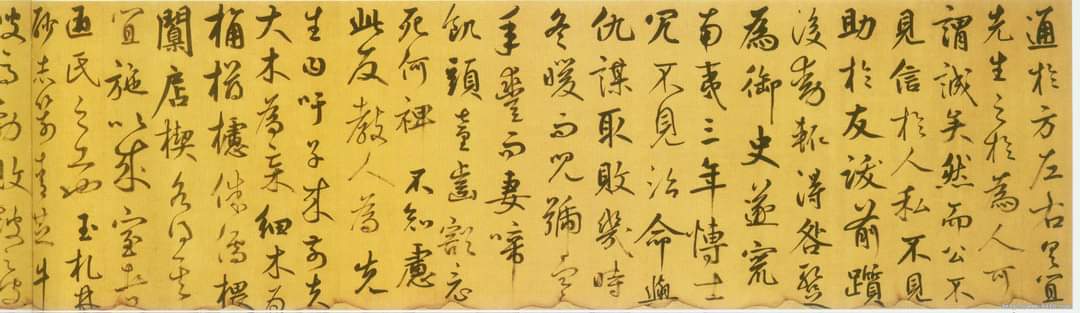 通於方左右具宜
先生之於為人可
謂誠矣然而公不
見信於人私不見
助於友跋前躓
後動輒得咎暫
為御史遂竄
南夷三年博士
冗不見治命與
仇謀取敗幾時
冬暖而兒號寒
年豐而妻啼
飢頭童齒豁竟
死何裨不知慮
此反教人為先
生曰吁子來前夫
大木為杗細木為
桷欂櫨侏儒椳
闑扂楔各得其
宜施以成室者
匠氏之工也玉札丹
砂赤箭青芝牛
溲馬勃敗鼓之皮